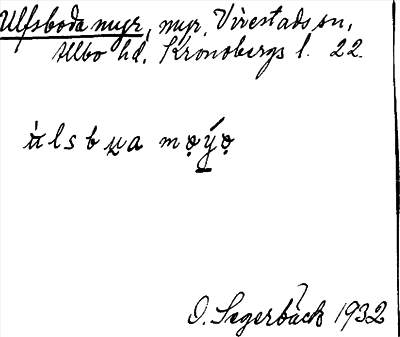 Ulfsboda myr, myr, Virestads sn,
Allbo hd. Kronobergs l. 22.
ù l s b u̯ a m ọ ý ọ
O. Segerbäck 1932